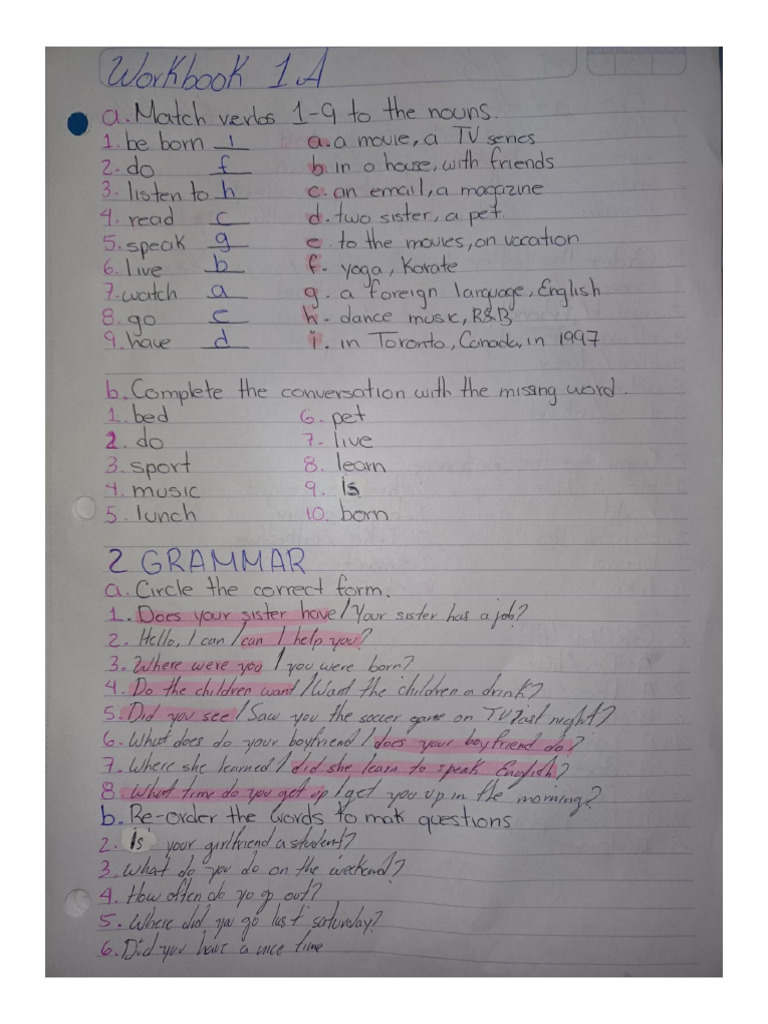 Workbook 1A
a. Match verbs 1-9 to the nouns.
1. be born i a. a movie, a TV series
2. do f b. in a house, with friends
3. listen to h c. an email, a magazine
4. read c d. two sister, a pet.
5. speak g e to the movies, on vacation
6. live b f. yoga, Karate
7. watch a g. a foreign language, English
8. go e h. dance music, R&B
9. have d i. in Toronto, Canada, in 1997
b. Complete the conversation with the missing word.
1. bed 6. pet
2. do 7. live
3. sport 8. learn
4. music 9. is
5. lunch 10. born
2 GRAMMAR
a. Circle the correct form.
1. Does your sister have / Your sister has a job?
2. Hello, I can / can I help you?
3. Where were you / you were born?
4. Do the children want / Want the children a drink?
5. Did you see / Saw you the soccer game on TV last night?
6. What does do your boyfriend / does your boyfriend do?
7. Where she learned / did she learn to speak English?
8. What time do you get up / get you up in the morning?
b. Re-order the words to mak questions
2. Is your girlfriend a student?
3. What do you do on the weekend?
4. How often do yo go out?
5. Where did you go last saturday?
6. Did you have a nice time